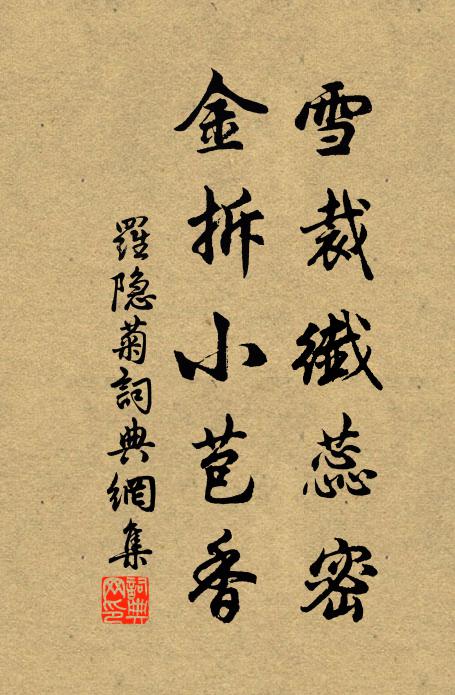 雪裁纖蕊密
金拆小苞香
羅隐菊詞典網集
詞典网印